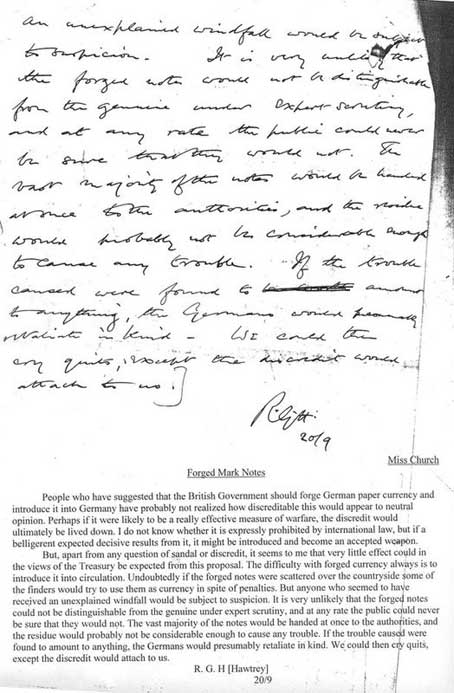 an unexplained windfall would be subject
to suspicion. It is very unlikely that
the forged notes would not be distinguishable
from the genuine under expert scrutiny,
and at any rate the public could never
be sure that they would not. The
vast majority of the notes would be handed
at once to the authorities, and the residue
would probably not be considerable enough
to cause any trouble. If the trouble
caused were found to amount
to anything, the Germans would presumably
retaliate in kind – We could then
cry quits, except the discredit would
attach to us.]
20/9
Miss Church
Forged Mark Notes
People who have suggested that the British Government should forge German paper currency and
introduce it into Germany have probably not realized how discreditable this would appear to neutral
opinion. Perhaps if it were likely to be a really effective measure of warfare, the discredit would
ultimately be lived down. I do not know whether it is expressly prohibited by international law, but if a
belligerent expected decisive results from it, it might be introduced and become an accepted weapon.
But, apart from any question of sandal or discredit, it seems to me that very little effect could in
the views of the Treasury be expected from this proposal. The difficulty with forged currency always is to
introduce it into circulation. Undoubtedly if the forged notes were scattered over the countryside some of
the finders would try to use them as currency in spite of penalties. But anyone who seemed to have
received an unexplained windfall would be subject to suspicion. It is very unlikely that the forged notes
could not be distinguishable from the genuine under expert scrutiny, and at any rate the public could never
be sure that they would not. The vast majority of the notes would be handed at once to the authorities, and
the residue would probably not be considerable enough to cause any trouble. If the trouble caused were
found to amount to anything, the Germans would presumably retaliate in kind. We could then cry quits,
except the discredit would attach to us.
R. G. H [Hawtrey]
20/9